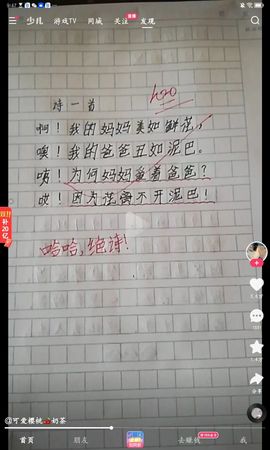 少儿 游戏TV 同城 关注 直播 发现
诗一首
啊!我的妈妈美如鲜花,
唉!我的爸爸丑如泥巴。
咦!为何妈妈爱着爸爸?
哎!因为花离不开泥巴!
哈哈,绝诗!
补20亿
分享
@可爱樱桃🍒奶茶
首页 朋友 去赚钱 我